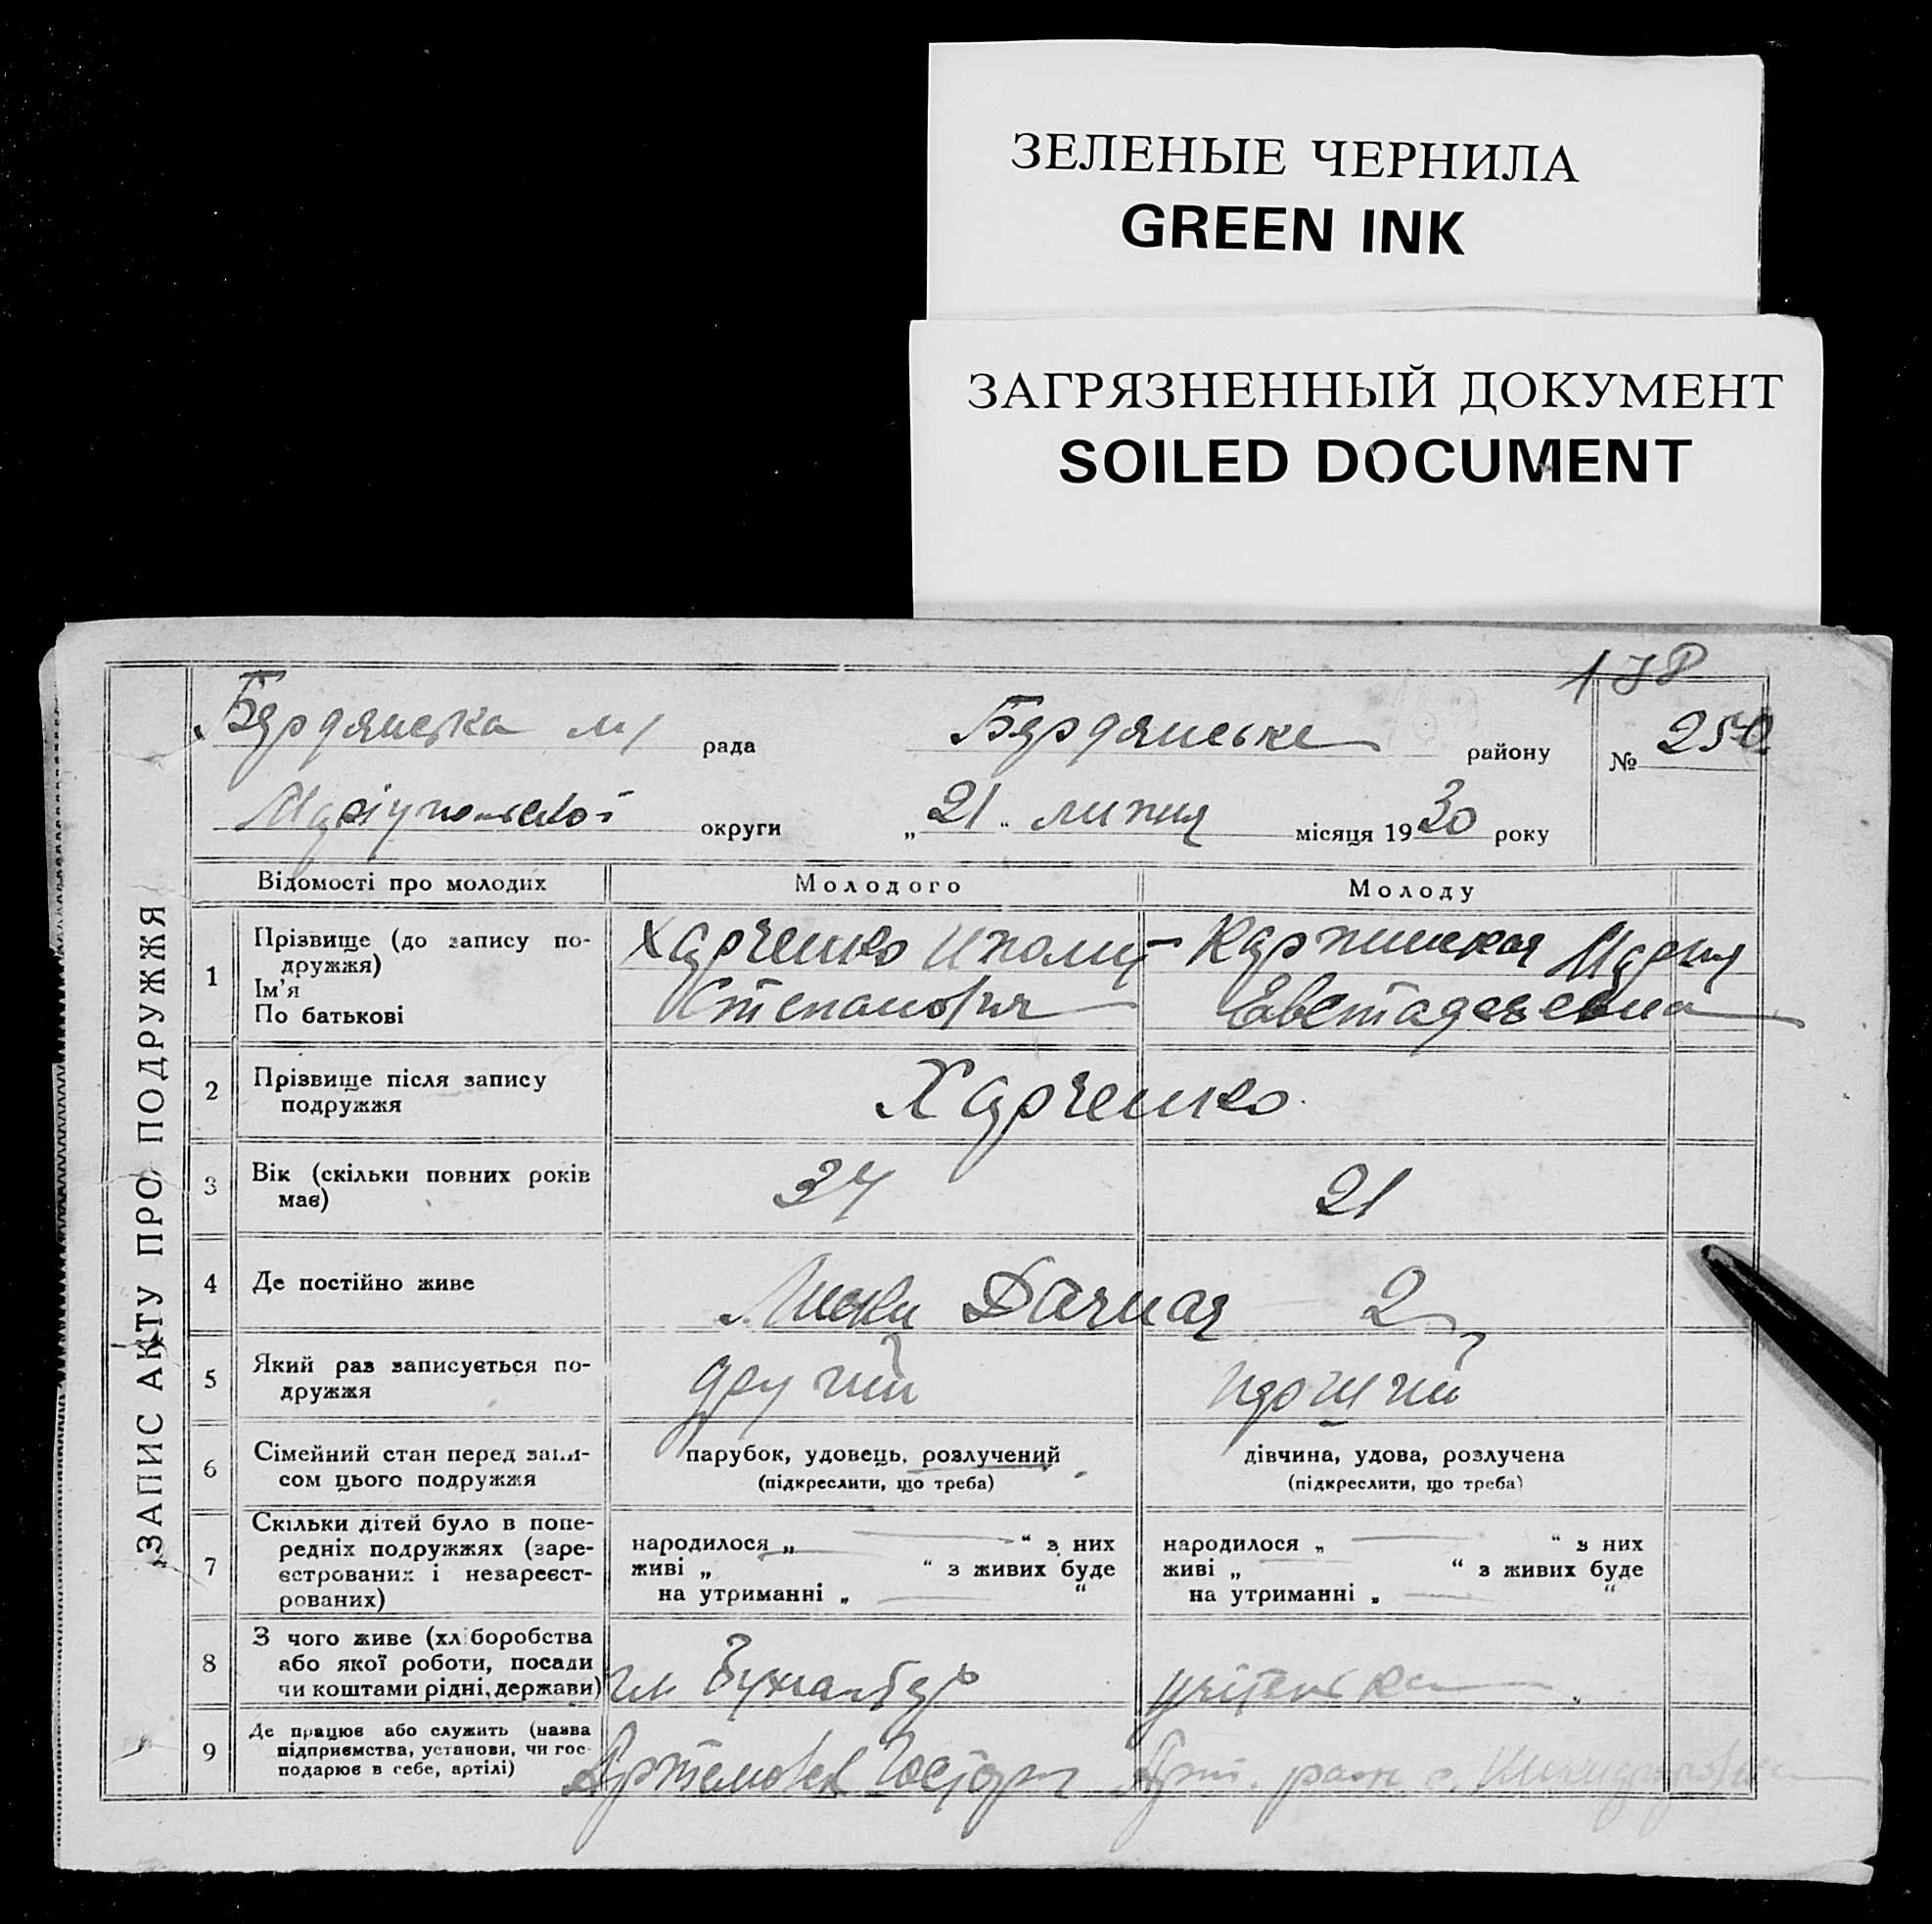 ЗЕЛЕНЫЕ ЧЕРНИЛА
GREEN INK
ЗАГРЯЗНЕННЫЙ ДОКУМЕНТ
SOILED DOCUMENT
ЗАПИС АКТУ ПРО ПОДРУЖЖЯ
Бердянська м/ рада Бердянське району № 250
Маріупольської округи „21“ липня місяця 1930 року
Відомості про молодих Молодого Молоду
1 Прізвище (до запису по-
дружжя)
Ім'я
По батькові
Харченко Иполит
Степанович
Карпинская Мария
2 Прізвище після запису
подружжя
Харченко
3 Вік (скільки повних років
має)
34 21
4 Де постійно живе
Лиски Дачная 2
5 Який раз записується по-
дружжя
другий перший
6 Сімейний стан перед запи-
сом цього подружжя
парубок, удовець, розлучений
(підкреслити, що треба)
дівчина, удова, розлучена
(підкреслити, що треба)
7 Скільки дітей було в попе-
редніх подружжях (заре-
єстрованих і незареєст-
рованих)
народилося „ “ з них
живі „ “ з живих буде
на утриманні „ “
народилося „ “ з них
живі „ “ з живих буде
на утриманні „ “
8 З чого живе (хліборобства
або якої роботи, посади
чи коштами рідні, держави)
гл Бухгалтер
учітелька
9 Де працює або служить (назва
підприємства, установи, чи гос-
подарює в себе, артілі)
Арт. с.